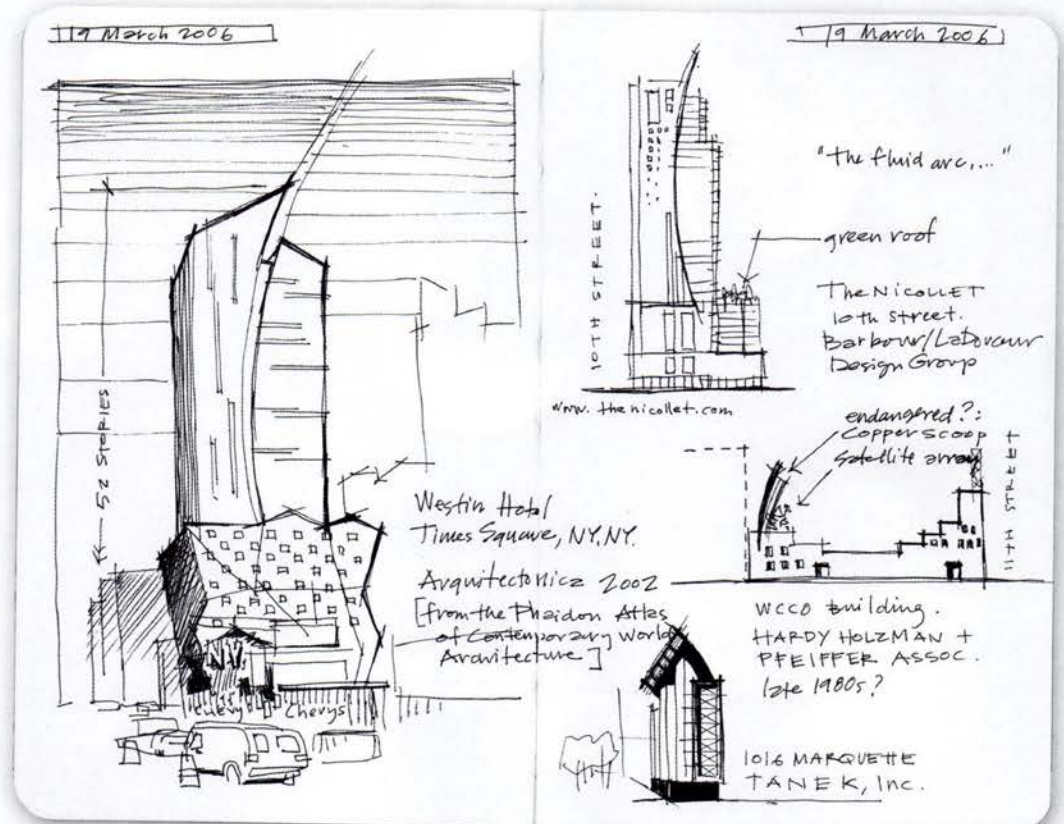 19 March 2006
52 STORIES
Westin Hotel
Times Square, NY, NY.
Arquitectonica 2002
[from the Phaidon Atlas
of Contemporary World
Architecture]
N.Y.
Chevys
19 March 2006
10TH STREET.
"the fluid arc,..."
green roof
The NICOLLET
10th street.
Barbour/LaDouceur
Design Group
www.thenicollet.com
endangered?:
Copper scoop
satellite array
11TH STREET
WCCO Building.
HARDY HOLZMAN +
PFEIFFER ASSOC.
late 1980s?
1016 MARQUETTE
TANEK, Inc.